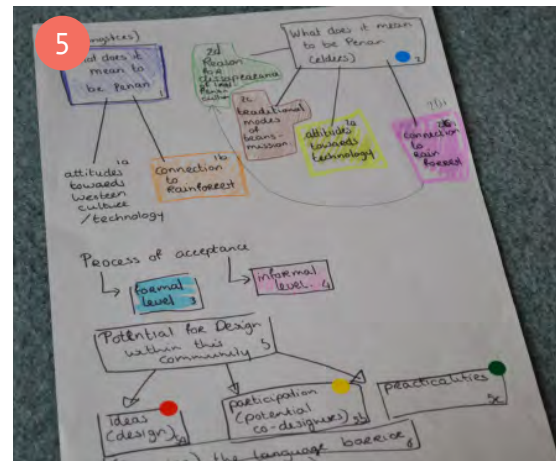 5
What does it
mean to
be Penan
1
2d
Reason
for
What does it mean
to be Penan
(elders)
2
2c
traditional
modes
of
attitudes
towards
technology
2a
connection
to
Rain
forrest
1a
attitudes
towards
Western
culture
/technology
1b
connection
to
Rainforrest
Process of acceptance
formal
level 3
informal
level. 4
Potential for Design
within this
community 5
ideas
(design) 5a
participation
(potential
co-designers) 5b
practicalities
5c
the language barrier
6